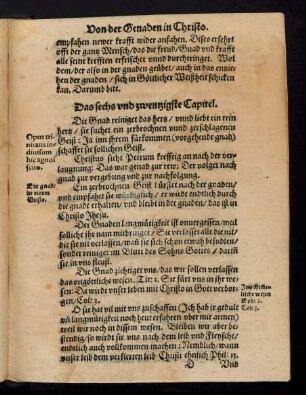 Von der Genaden in Christo.
empfahen newer krafft wider anfahen. Dises erfehrt
offt der gantz Mensch/das die freud/Gnad vnd krafft
alle seine krefften erfrischet vnnd durchtringet. Wol
dem/der also in der gnaden grübet/auch in das entzie=
hen der gnaden/sich in Göttlicher Weißheit schicken
kan. Darumb bitt.
Das sechs vnd zwentzigste Capitel.
Die Gnad reiniget das hertz/vnnd liebt ein rein
hertz/sie suchet ein zerbrochnen vnnd zerschlagenen
Geist: Ja inn ihrem fürkommen (vorgehende gnad)
schaffet sie sollichen Geist.
Christus sicht Petrum krefftig an nach der ver=
laugnung: Das war genad zur rew: Der volget nach
gnad zur vergebung vnd zur nachfolgung.
Ein zerbrochnen Geist dürstet nach der gnaden/
vnd empfahet sie würdigklich/er würdt endtlich durch
die gnade erhalten/vnd bleibt in der gnaden/das ist in
Christo Jhesu.
Der Gnaden langmütigkeit ist onuergessen/weil
solliche jhr nam mitbringet/Sie verlasset alle die nit/
die sie nit verlassen/waß sie sich schon etwañ besudlen/
sonder reiniget im Blut des Sohns Gottes/dañ
sie in vns fleust.
Die Gnad züchtiget vns/das wir sollen verlassen
das ongötliche wesen. Tit: 2. Sie fürt vns in jhr we=
sen: Da würdt vnser leben mit Christo in Gott verbor=
gen/Col: 3.
O sie hat vil mit vns zuschaffen (Ich hab jr gedult
vñ langmütigkeit noch heut erfahren vber mir armen)
weil wir noch in disem wesen. Bleiben wir aber be=
stendig/so würdt sie das nach dem leib vnd Fleysche/
endtlich auch vollkommen machen: Nemblich/wann
vnser leib dem verklerten leib Christi ehnlich Phil: 3.
D Vnd
Die gnade
in novem